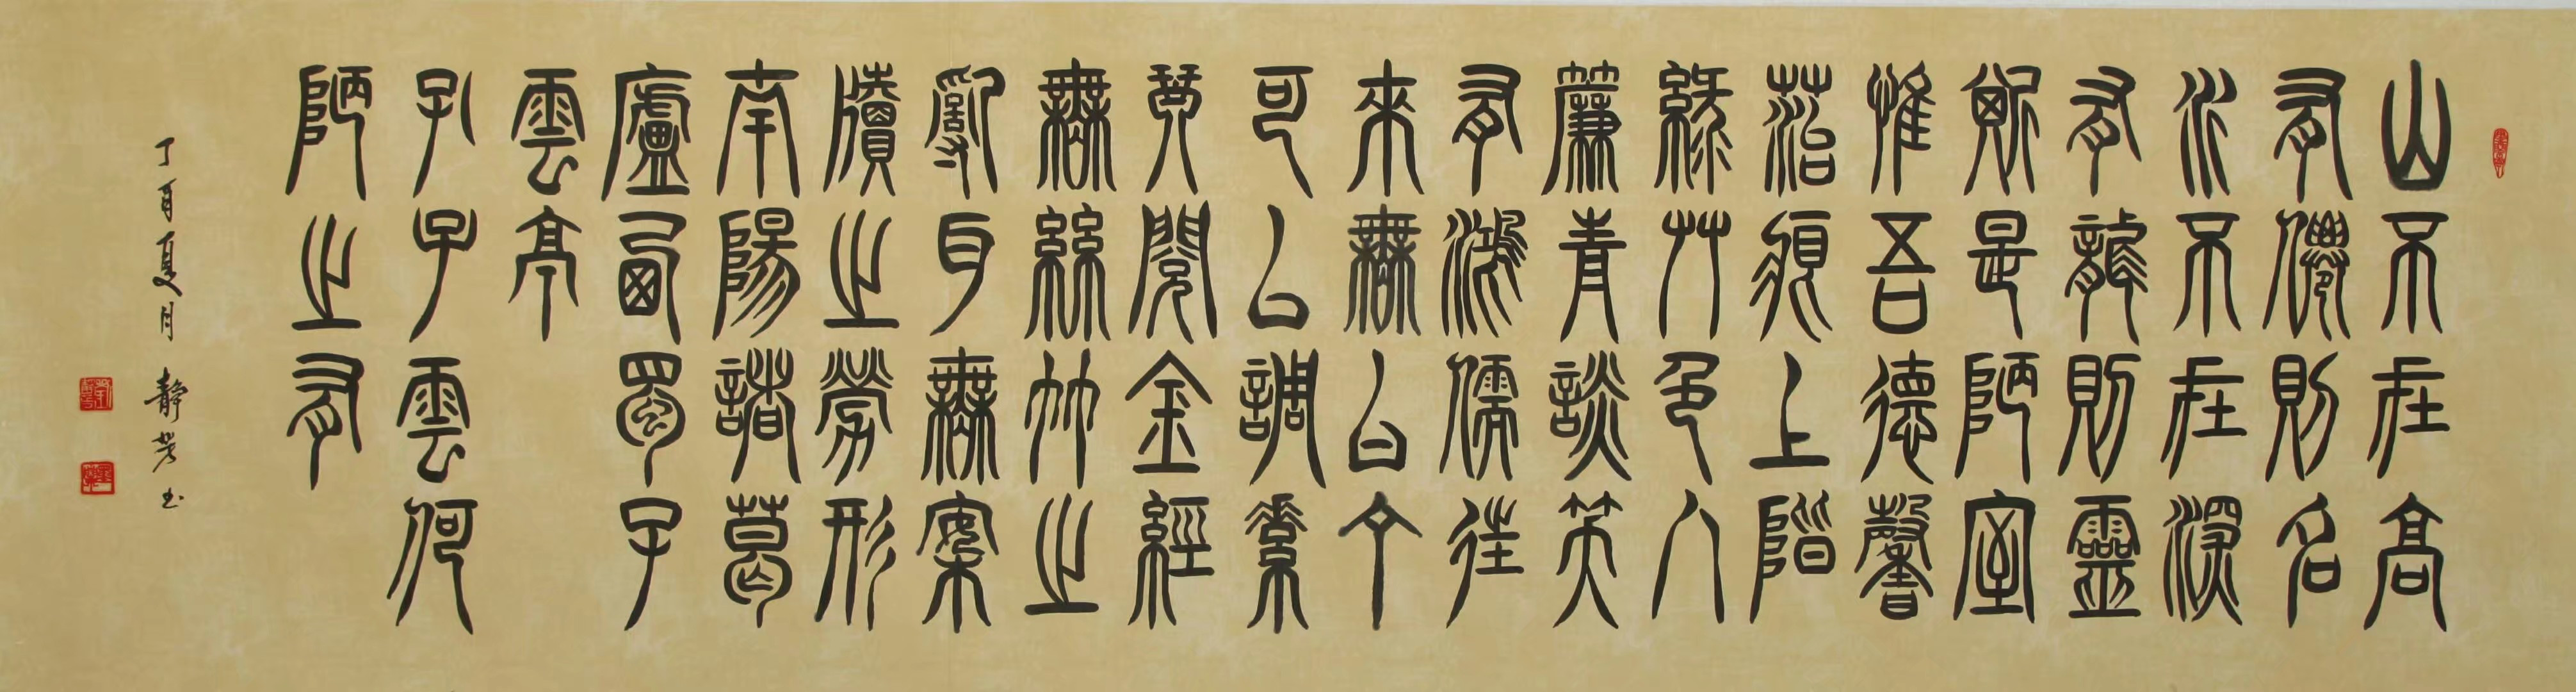 山不在高
有僊則名
水不在深
有龍則靈
斯是陋室
惟吾德馨
菭痕上階
綠艸色入
簾青談笑
有鴻儒往
來無白丁
可以調素
琴閱金經
無絲竹之
亂耳無案
牘之勞形
南陽諸葛
廬西蜀子
雲亭
孔子雲何
陋之有
丁酉夏月 靜芳书